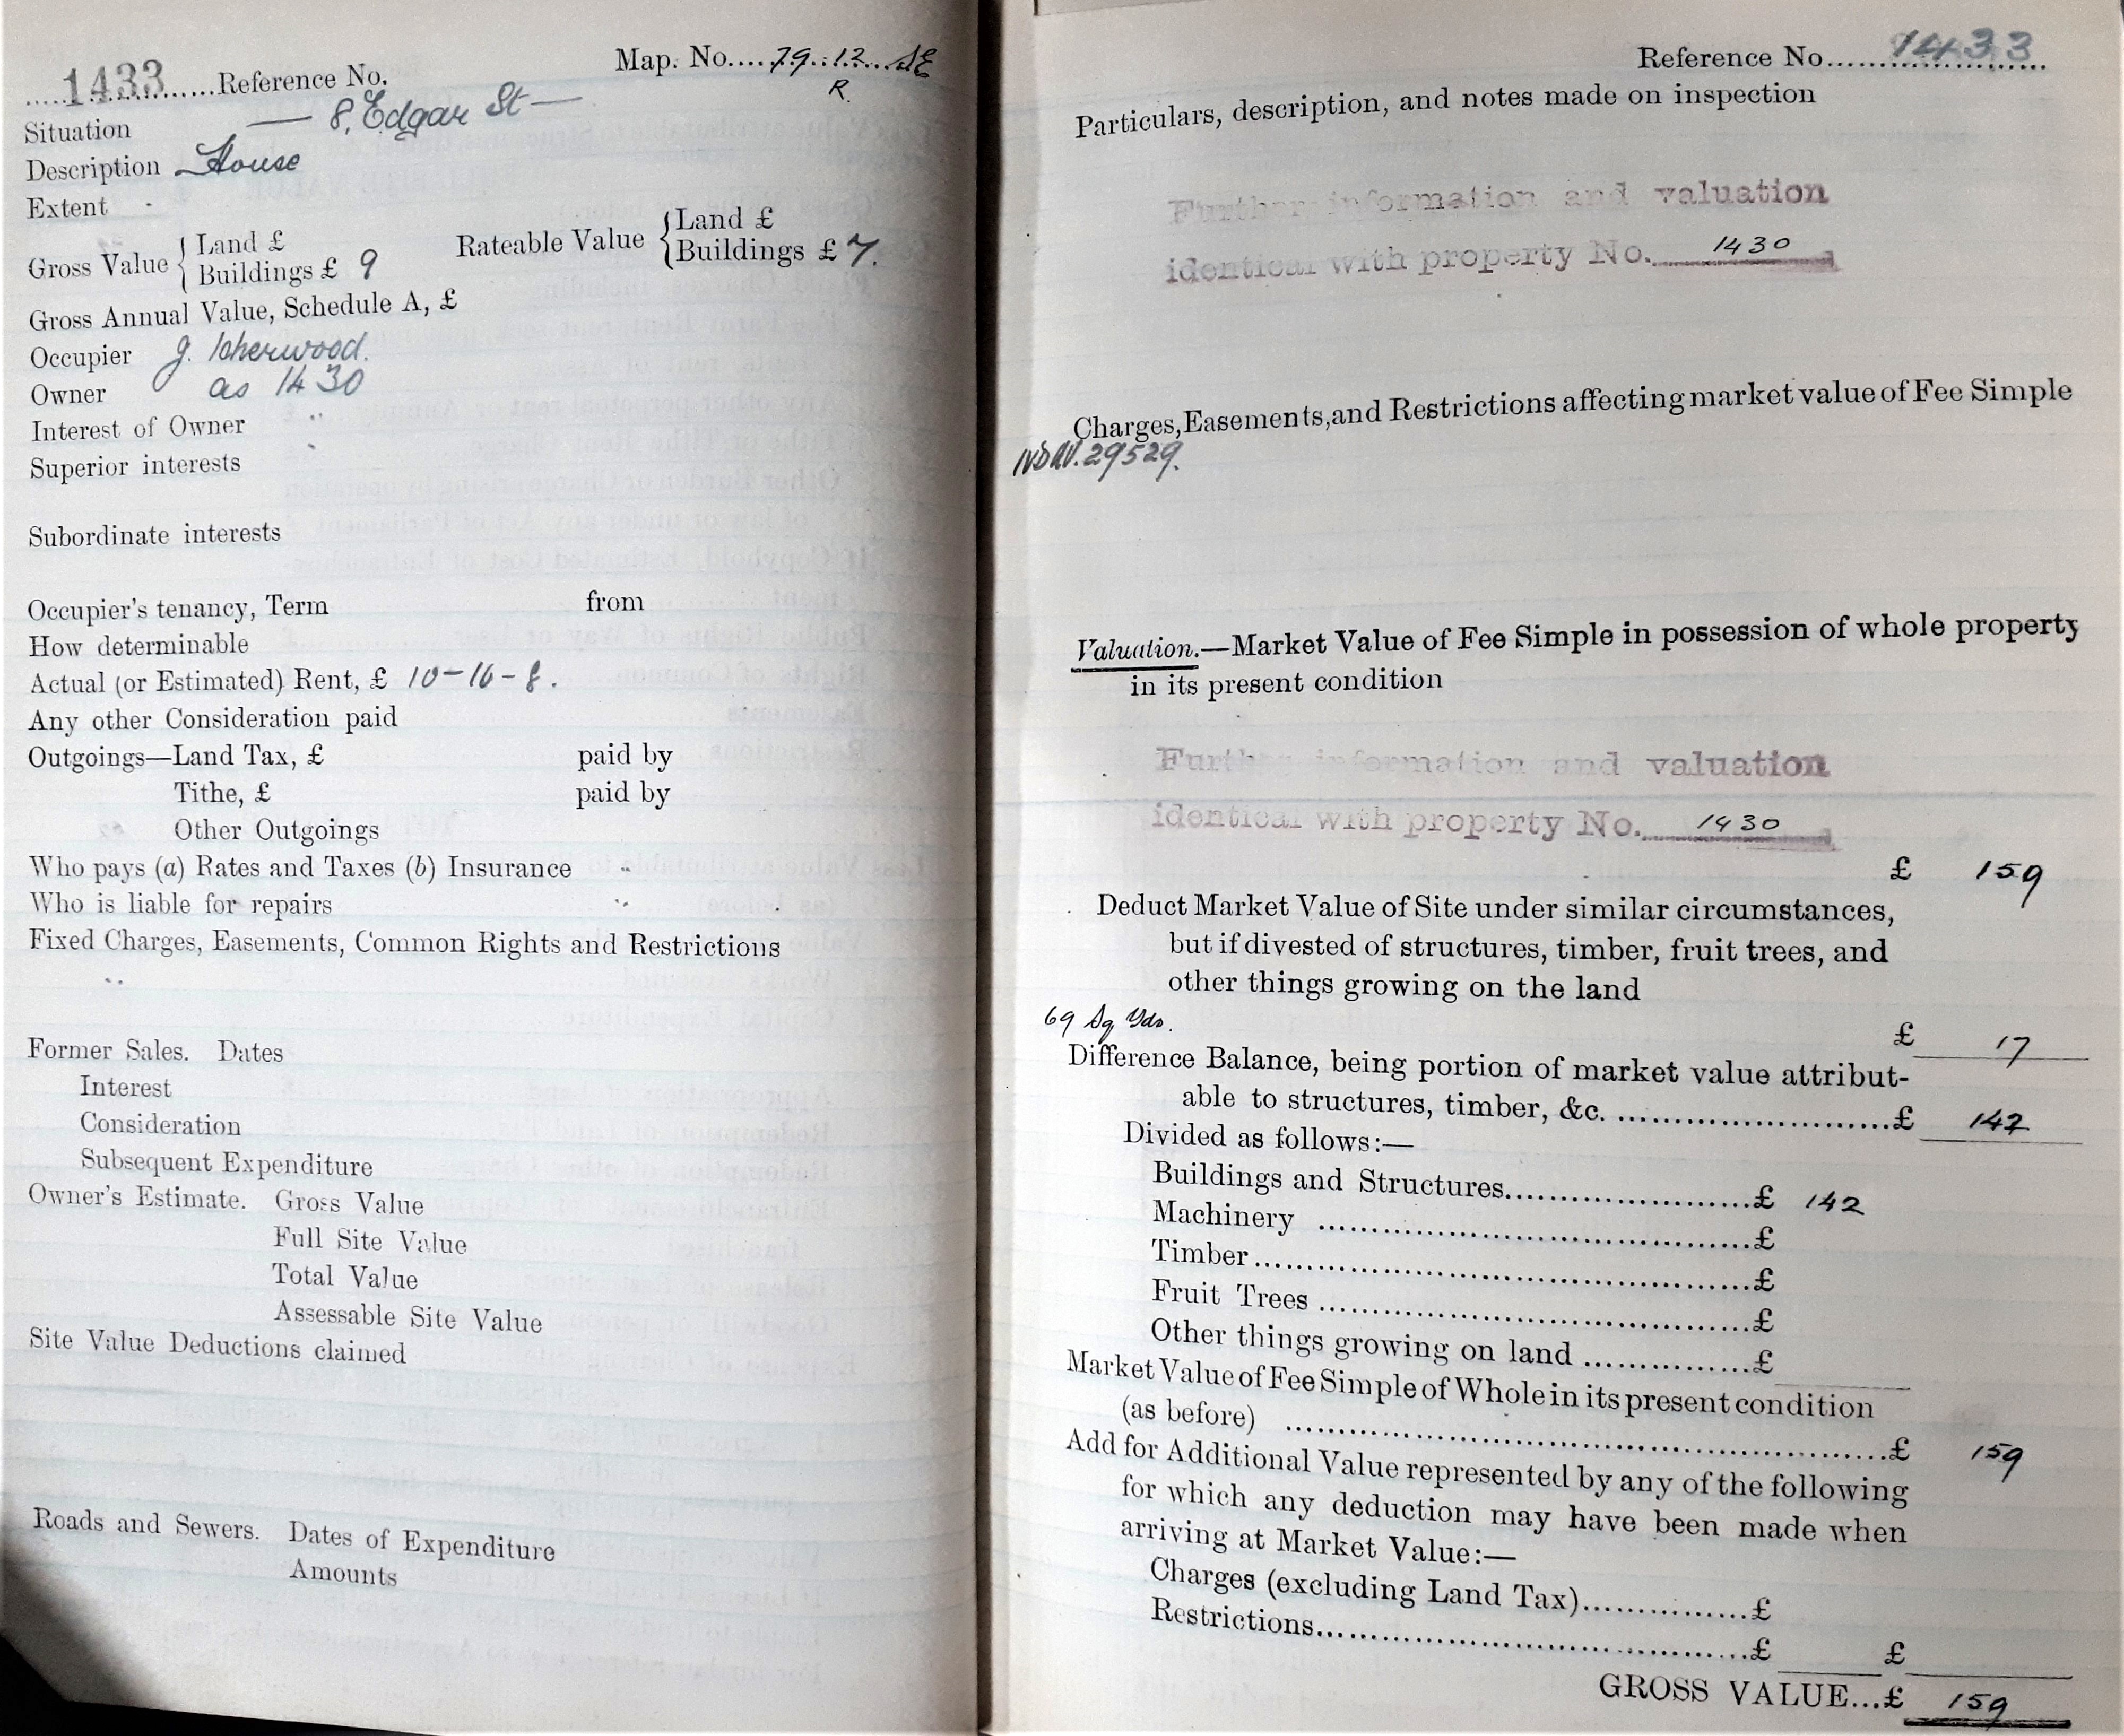 1433 Reference No. Map. No. 79.12. SE
R.
Situation — 8, Edgar St —
Description House
Extent "
Gross Value { Land £
Buildings £ 9
Rateable Value { Land £
Buildings £ 7.
Gross Annual Value, Schedule A, £
Occupier J. Isherwood.
Owner as 1430
Interest of Owner "
Superior interests "
Subordinate interests
Occupier's tenancy, Term from
How determinable
Actual (or Estimated) Rent, £ 10-16-8.
Any other Consideration paid
Outgoings—Land Tax, £ paid by
Tithe, £ paid by
Other Outgoings
Who pays (a) Rates and Taxes (b) Insurance "
Who is liable for repairs "
Fixed Charges, Easements, Common Rights and Restrictions
"
Former Sales. Dates
Interest
Consideration
Subsequent Expenditure
Owner's Estimate. Gross Value
Full Site Value
Total Value
Assessable Site Value
Site Value Deductions claimed
Roads and Sewers. Dates of Expenditure
Amounts
Reference No. 1433
Particulars, description, and notes made on inspection
Further information and valuation
identical with property No. 1430
Charges, Easements, and Restrictions affecting market value of Fee Simple
29529.
Valuation.—Market Value of Fee Simple in possession of whole property
in its present condition
Further information and valuation
identical with property No. 1430
£ 159
Deduct Market Value of Site under similar circumstances,
but if divested of structures, timber, fruit trees, and
other things growing on the land
69 Sq Yds.
£ 17
Difference Balance, being portion of market value attribut-
able to structures, timber, &c. ........ £ 142
Divided as follows:—
Buildings and Structures........ £ 142
Machinery ........ £
Timber ........ £
Fruit Trees ........ £
Other things growing on land ........ £
Market Value of Fee Simple of Whole in its present condition
(as before) ........ £ 159
Add for Additional Value represented by any of the following
for which any deduction may have been made when
arriving at Market Value:—
Charges (excluding Land Tax)........ £
Restrictions........ £ £
GROSS VALUE...£ 159